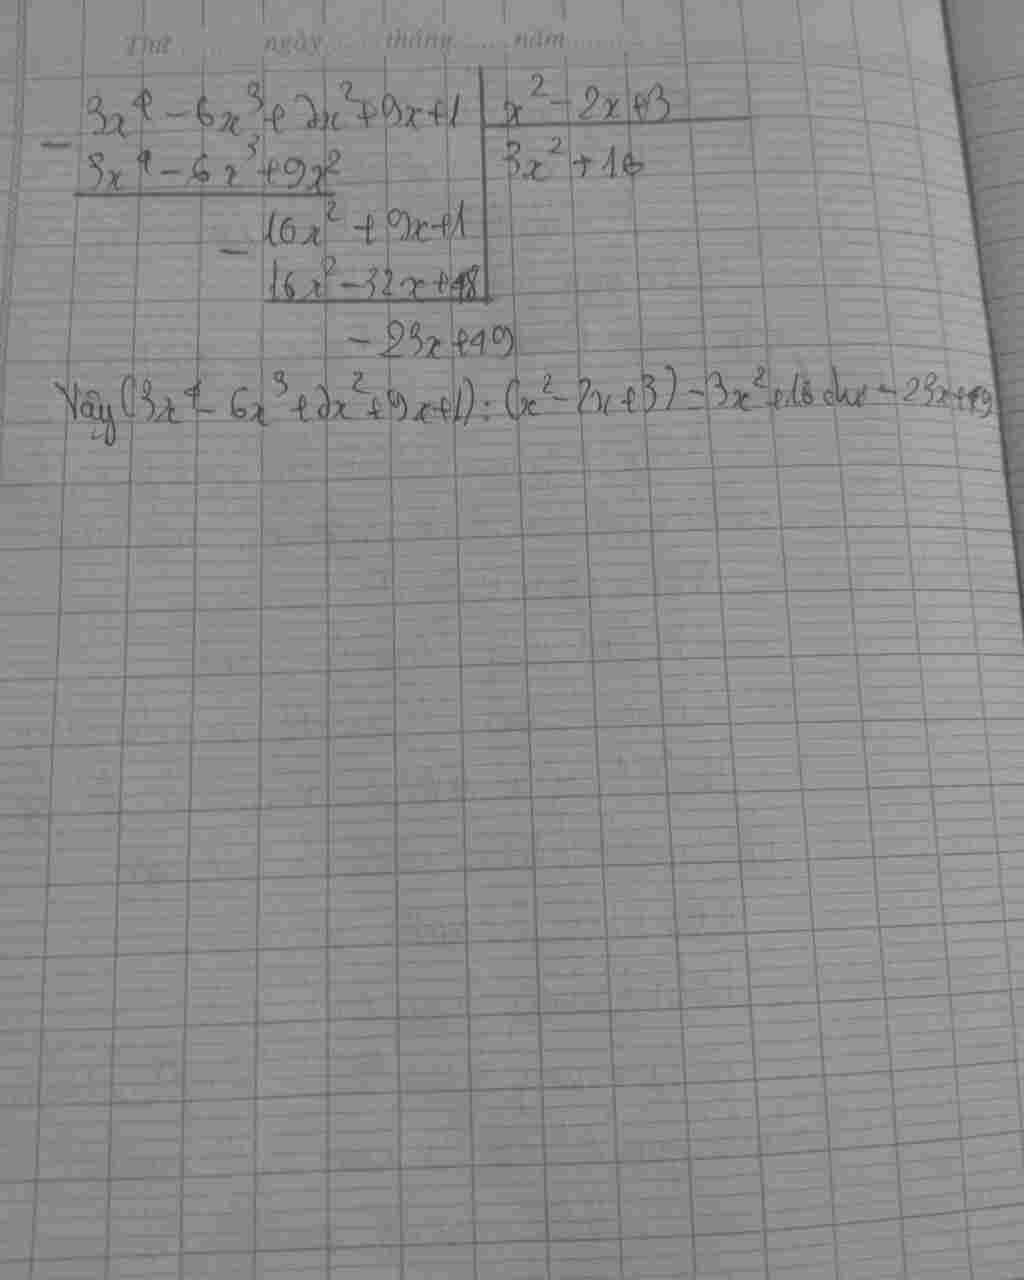 Thứ ...... ngày ...... tháng ...... năm ......
3x⁴ - 6x³ + 2x² + 9x + 1 | x² - 2x + 3
-
3x⁴ - 6x³ + 9x² | 3x² + 16
- 16x² + 9x + 1
16x² - 32x + 48
- 23x + 49
Vậy (3x⁴ - 6x³ + 2x² + 9x + 1) : (x² - 2x + 3) = 3x² + 16 dư - 23x + 49